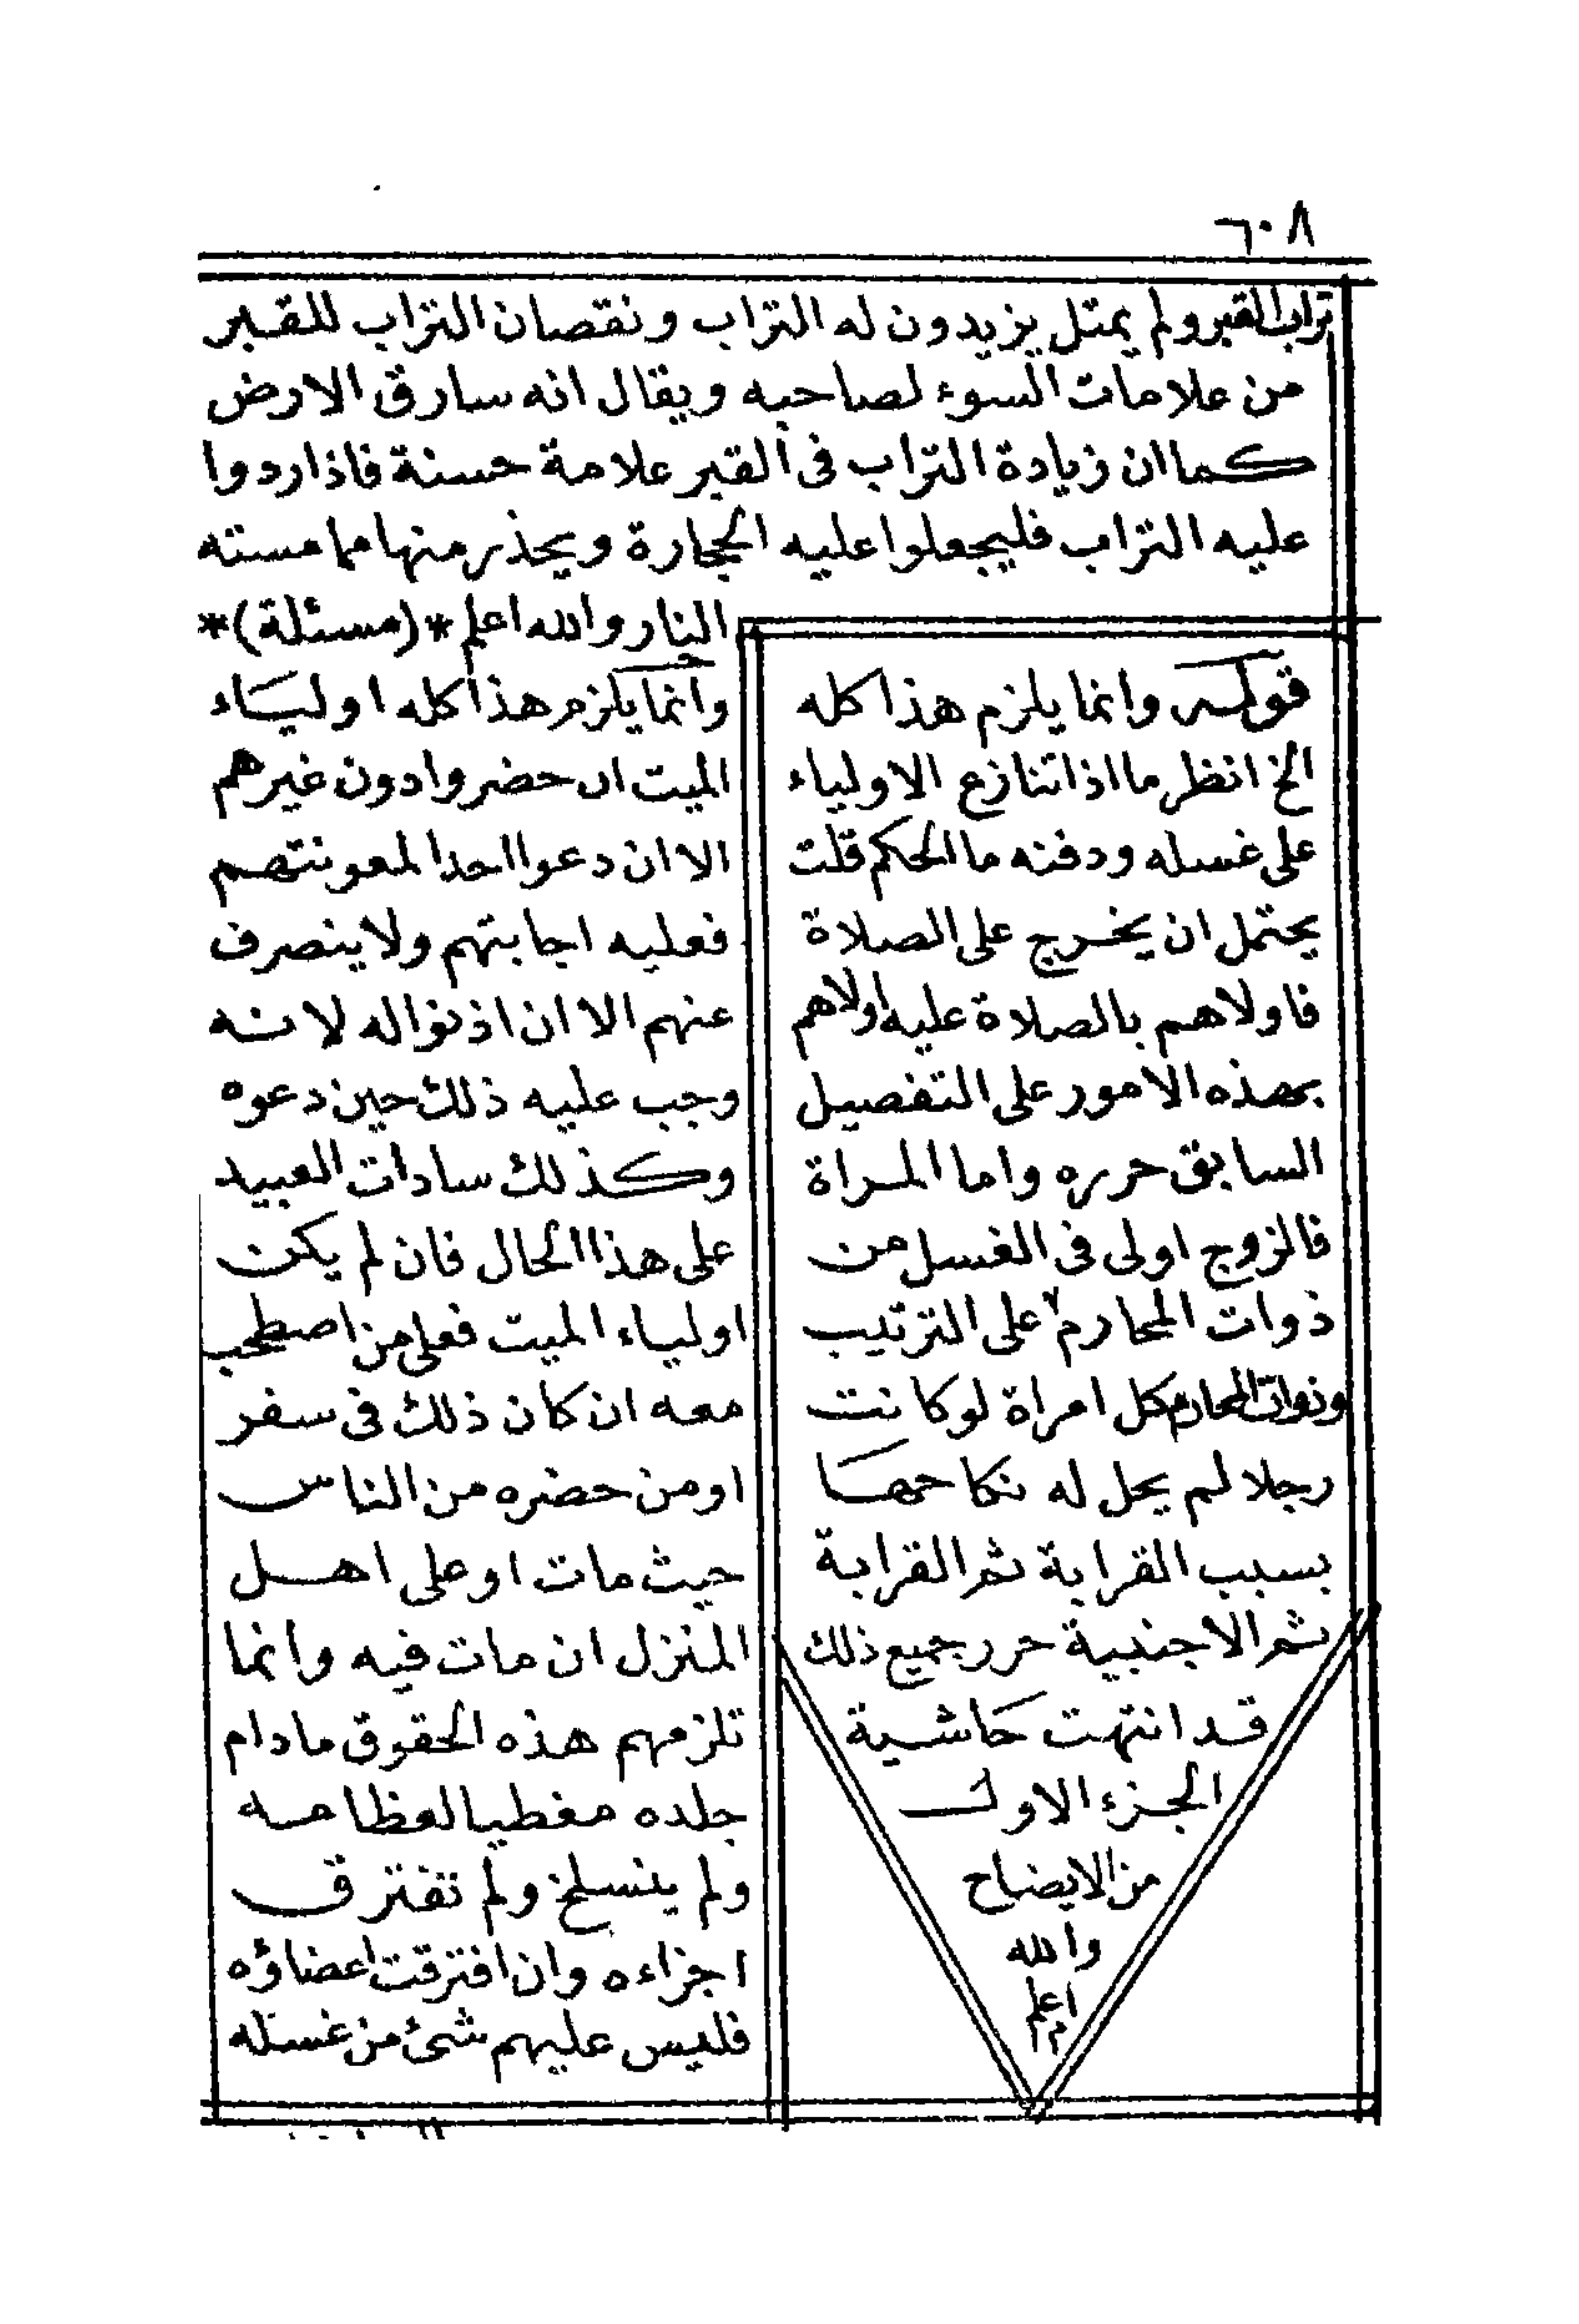 ٦٠٨
تراب القبر ولم يمتل يزيدون له التراب ونقصان التراب للقبر
من علامات السوء لصاحبه ويقال انه سارق الارض
كما ان زيادة التراب فى القبر علامة حسنة فاذا ردوا
عليه التراب فليجعلوا عليه الحجارة ويحذر منها مما مسته
النار والله اعلم *(مسئلة)*
وانما يلزم هذا كله اولياء
الميت ان حضروا دون غيرهم
الا ان دعوا احدا لمعونتهم
فعليه اجابتهم ولا ينصرف
عنهم الا ان اذنوا له لانه
وجب عليه ذلك حين دعوه
وكذلك سادات العبيد
على هذا الحال فان لم يكن
اولياء الميت فعلى من اصطحب
معه ان كان ذلك فى سفر
او من حضره من الناس
حيث مات او على اهل
المنزل ان مات فيه وانما
تلزمهم هذه الحقوق مادام
جلده مغطيا لعظامه
ولم ينسلخ ولم تفترق
اجزاءه وان افترقت اعضاؤه
فليس عليهم شئ من غسله
قوله وانما يلزم هذا كله
الخ انظر ما اذا تنازع الاولياء
على غسله ودفنه ما الحكم قلت
يحتمل ان يخرج على الصلاة
فاولاهم بالصلاة عليه اولاهم
بهذه الامور على التفصيل
السابق حرره واما المراة
فالزوج اولى فى الغسل من
ذوات المحارم على الترتيب
وذوات المحارم كل امراة لو كانت
رجلا لم يحل له نكاحها
بسبب القرابة ثم القرابة
ثم الاجنبية حرر جميع ذلك
قد انتهت حاشية
الجزء الاول
من الايضاح
والله
اعلم
م